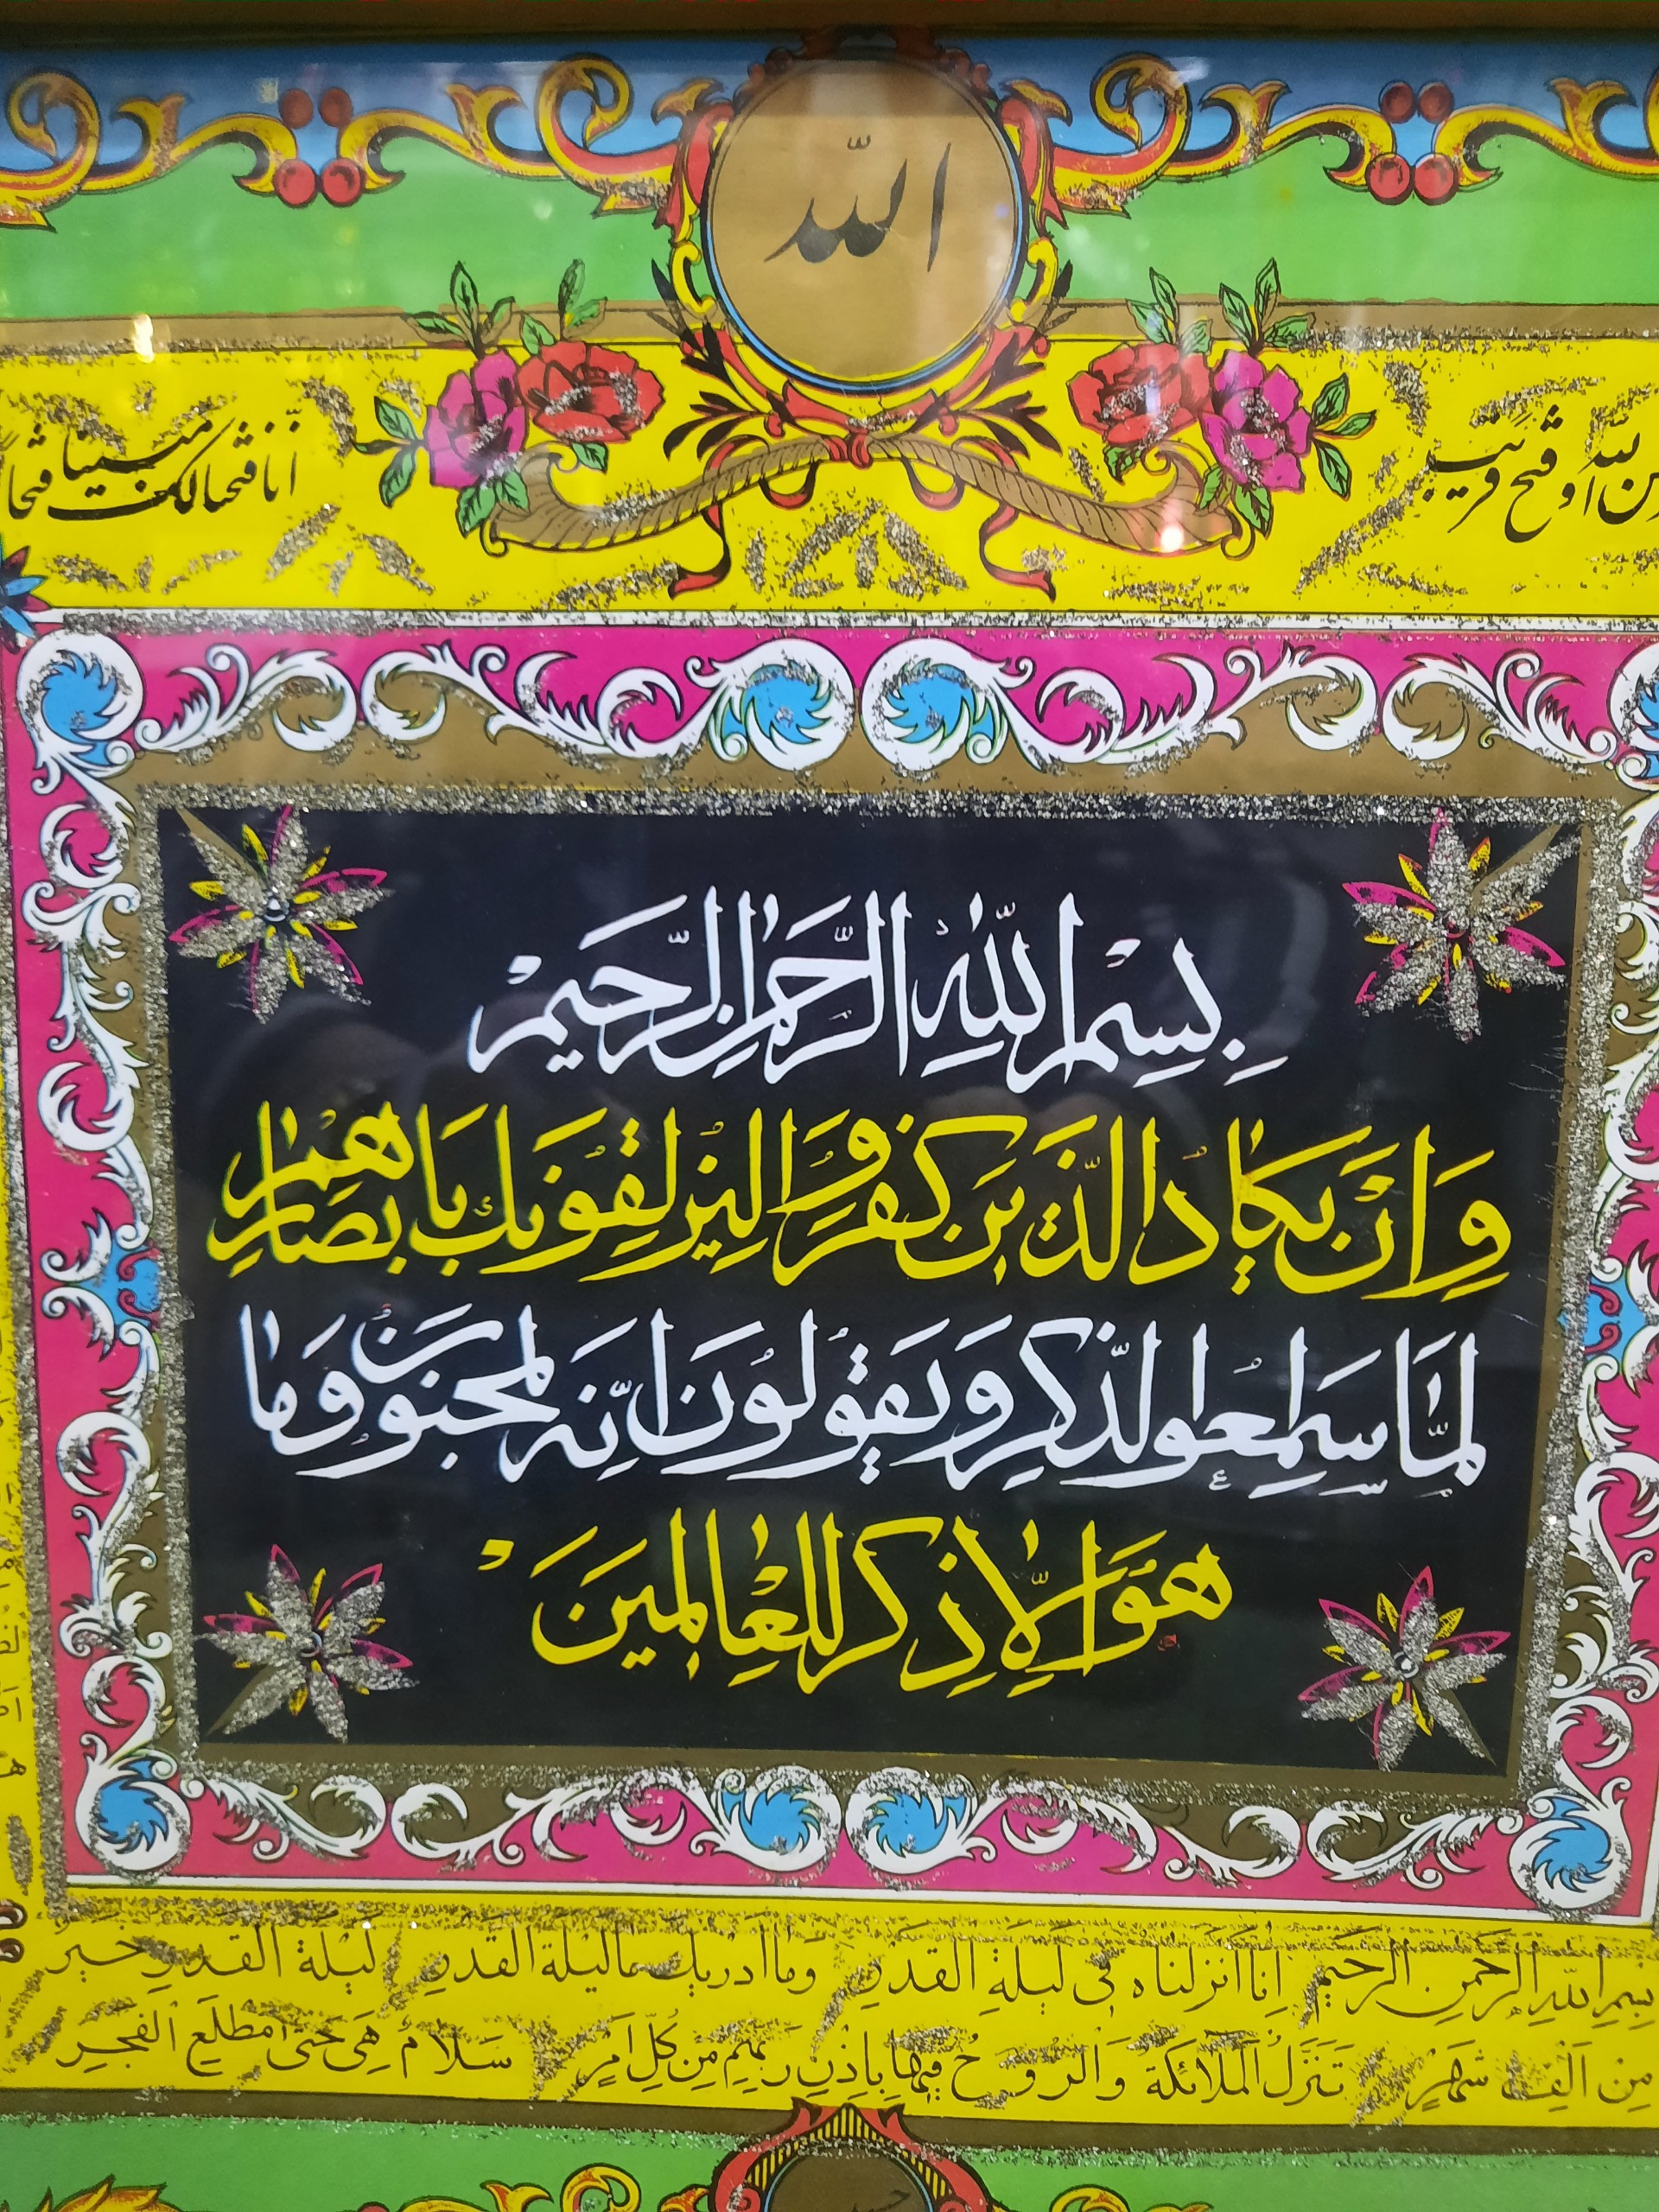 الله
من الله و فتح قریب
انا فتحنا لک فتحا مبینا
بِسْمِ اللّٰهِ الرَّحْمٰنِ الرَّحیمْ
وَاِنْ یَکٰادُ الَّذینَ کَفَرُوا لَیُزْلِقُونَکَ بِاَبْصٰارِهِمْ
لَمّٰا سَمِعُوا الذِّکْرَ وَ یَقُولُونَ اِنَّهُ لَمَجْنُونٌ وَمٰا
هُوَ اِلّٰا ذِکْرٌ لِلْعٰالَمینَ
بِسْمِ اللهِ الرَّحْمنِ الرَّحیمِ اِنا انزلناه فی لیلةِ القَدرِ وَما ادریک ما لیلة القَدرِ لَیْلَة القَدرِ خَیرٌ
مِن اَلْفِ شَهْرٍ تَنَزَّلُ الْمَلآئکَةُ وَالرّوُحُ فیها بِاِذْنِ رَبِّهِم مِن کُلِّ اَمْرٍ سَلامٌ هِیَ حَتی مَطْلَعِ الْفَجْرِ